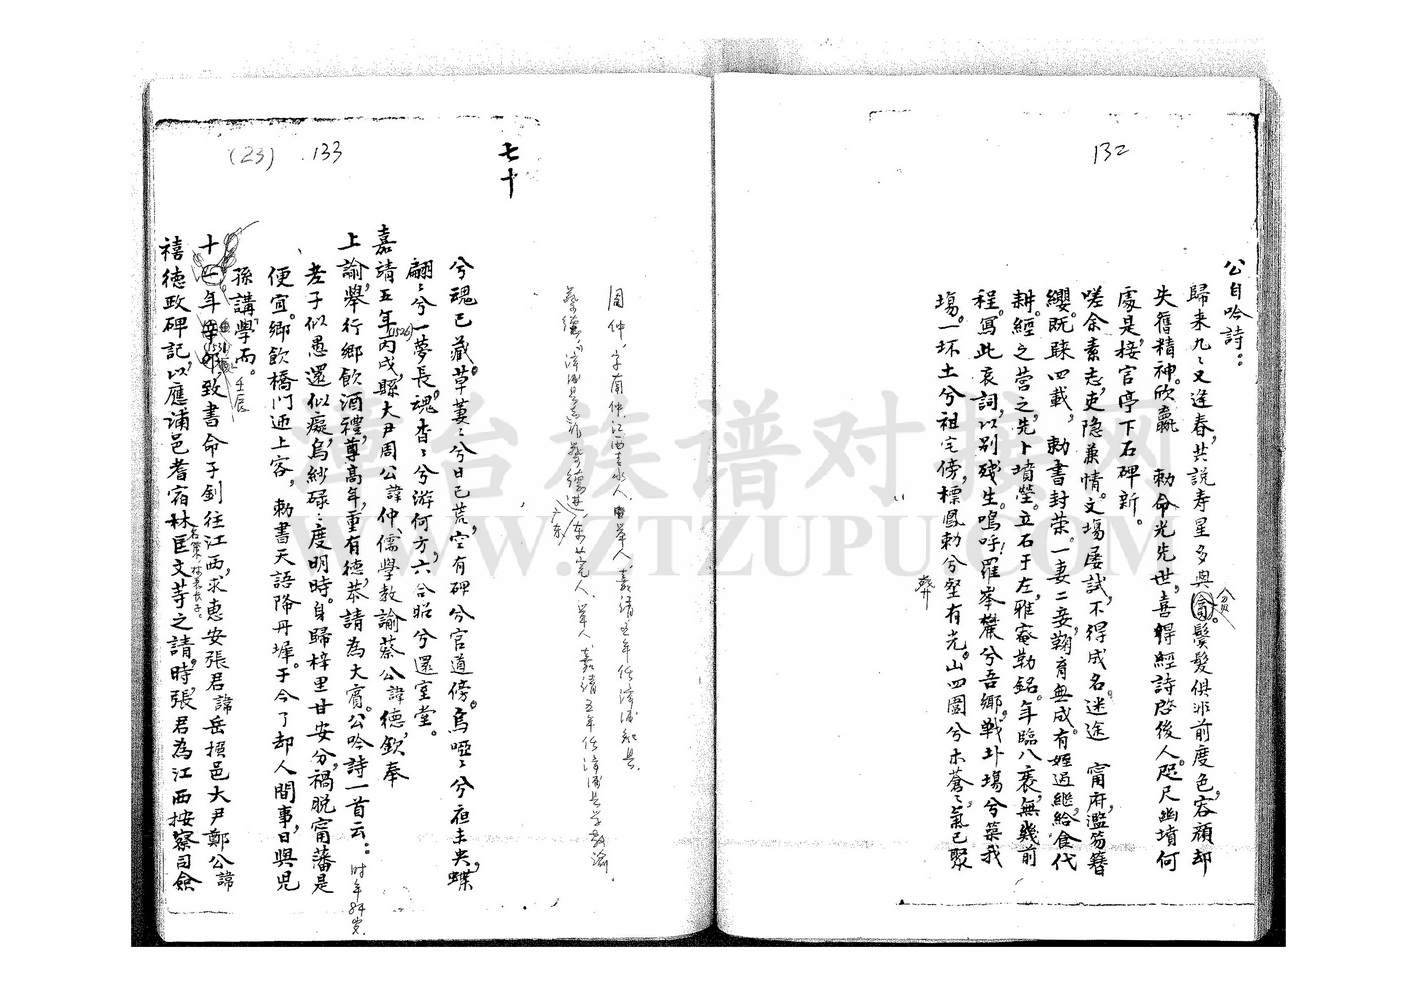 132
公自吟詩：
歸来九〻又逢春，共説寿星多與 鬢髮俱非前度色，容顔却
貧
失舊精神。欣贏 勅命光先世，喜得經詩啓後人。咫尺幽墳何
處是，接官亭下石碑新。
嗟余素志，吏隐兼情。文場屡試，不得成名。迷途 甯府，濫笏簪
纓。既睐四載， 勅書封荣。一妻二妾，鞠育無成。有姪過繼，給食代
耕。經之营之，先卜墳塋。立石于左，雅菴勒銘。年臨八袠，無幾前
程。寫此哀詞，以别残生。嗚呼！羅峯麓兮吾鄉，戰圤塲兮築我
塲。一坏土兮祖宅傍，標鳳勅兮壑有光。山四圍兮木蒼〻，氣已聚
葬
(23) 133
七十
周仲，字南仲，江西吉水人，由举人，嘉靖五年任漳浦知县
蔡德 漳浦县志 蔡德进 广东 东莞人，举人，嘉靖五年任漳浦县学教諭。
兮魂已藏。草萋〻兮日已荒，空有碑兮官道傍。烏啞〻兮夜未央，蝶
翩〻兮一夢長。魂杳〻兮游何方，六合昭兮還室堂。
嘉靖五年(1526)丙戌，縣大尹周公諱仲，儒學教諭蔡公諱德，欽奉
上諭，舉行鄉飲酒禮，尊高年，重有德，恭請為大賓。公吟詩一首云： 时年84岁
老子似愚還似癡，烏紗碌〻度明時。身歸梓里甘安分，禍脱甯藩是
便宜。鄉飲橋門迎上客，勅書天語降丹墀。于今了却人間事，日與児
孫講學而。
十一年 壬辰 致書命子釗往江西，求惠安張君諱岳撰邑大尹鄭公諱
禧德政碑記，以應浦邑耆宿林匡文䓁之請。時，張君為江西按察司僉